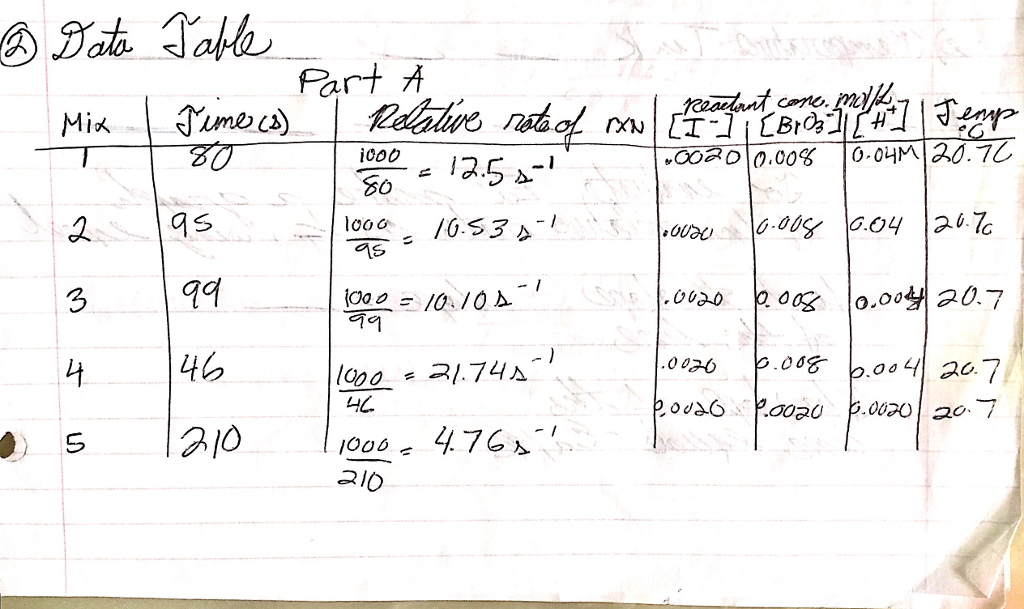 ② Data Table
Part A
Mix Time (s) Relative rate of rxn Reactant conc. mol/L [I-] [BrO3-] [H+] Temp °C
1 80 1000/80 = 12.5 s-1 .0020 0.008 0.04M 20.7C
2 95 1000/95 = 10.53 s-1 .0020 0.008 0.04 20.7c
3 99 1000/99 = 10.10 s-1 .0020 0.008 0.004 20.7
4 46 1000/46 = 21.74 s-1 .0020 0.008 0.004 20.7
0.0020 0.0020 0.0020 20.7
5 210 1000/210 = 4.76 s-1